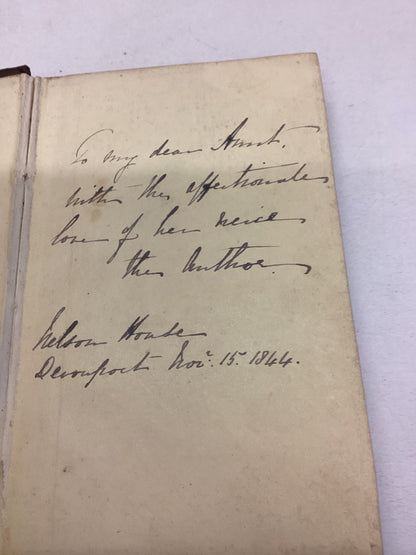 To my dear Aunt.
with the affectionate
love of her neice
the Author
Nelson House
Devonport Nov. 15. 1844.